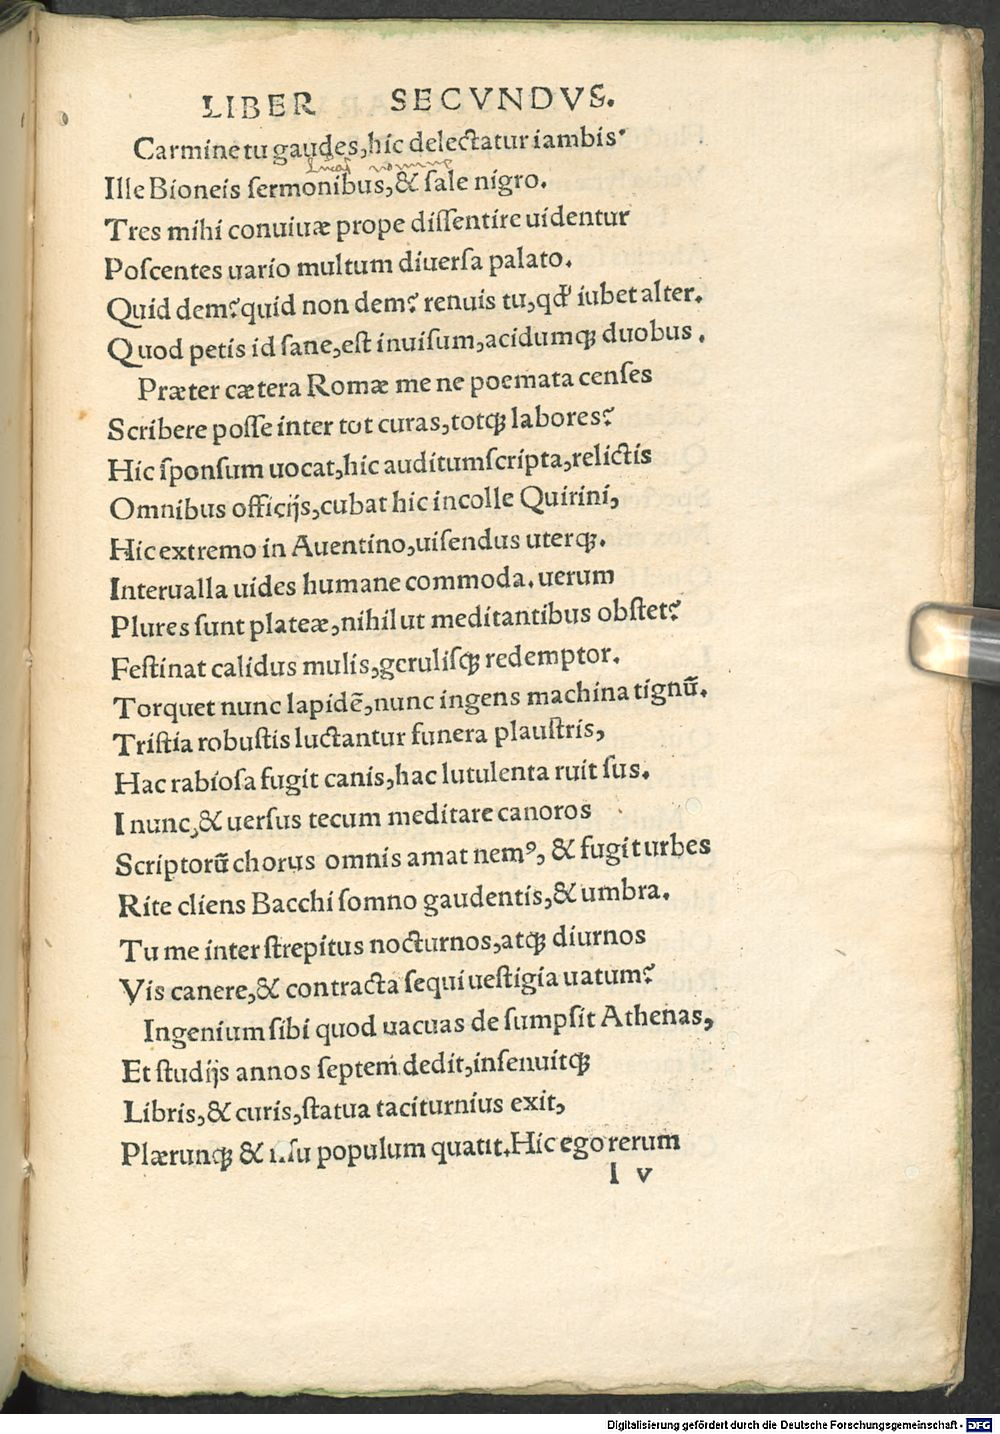 LIBER SECVNDVS.
Carmine tu gaudes, hic delectatur iambis
Ille Bioneis ſermonibus, & ſale nigro.
Tres mihi conuiuæ prope diſſentire uidentur
Poſcentes uario multum diuerſa palato.
Quid dem? quid non dem? renuis tu, qđ iubet alter.
Quod petis id ſane, eſt inuiſum, acidumqꝫ duobus.
Præter cætera Romæ me ne poemata cenſes
Scribere poſſe inter tot curas, totqꝫ labores?
Hic ſponſum uocat, hic auditum ſcripta, relictis
Omnibus officijs, cubat hic in colle Quirini,
Hic extremo in Auentino, uiſendus uterqꝫ.
Interualla uides humane commoda. uerum
Plures ſunt plateæ, nihil ut meditantibus obſtet?
Feſtinat calidus mulis, geruliſqꝫ redemptor.
Torquet nunc lapidē, nunc ingens machina tignū.
Triſtia robuſtis luctantur funera plauſtris,
Hac rabioſa fugit canis, hac lutulenta ruit ſus.
I nunc, & uerſus tecum meditare canoros
Scriptorū chorus omnis amat nemꝰ, & fugit urbes
Rite cliens Bacchi ſomno gaudentis, & umbra.
Tu me inter ſtrepitus nocturnos, atqꝫ diurnos
Vis canere, & contracta ſequi ueſtigia uatum?
Ingenium ſibi quod uacuas de ſumpſit Athenas,
Et ſtudijs annos ſeptem dedit, inſenuitqꝫ
Libris, & curis, ſtatua taciturnius exit,
Plærunqꝫ & populum quatit. Hic ego rerum
I v
Digitalisierung gefördert durch die Deutsche Forschungsgemeinschaft - DFG